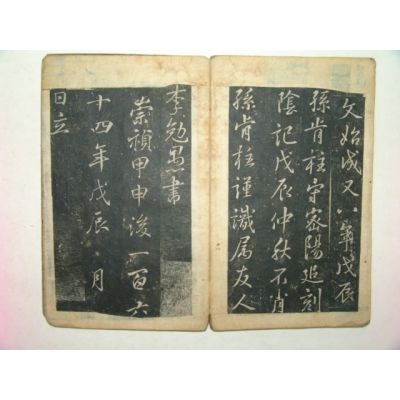 文始成又八年戊辰
孫肯柱守密陽追刻
陰記戊辰仲秋不肖
孫肯柱謹識属友人
李勉愚書
崇禎甲申後一百六
十四年戊辰八月
日立